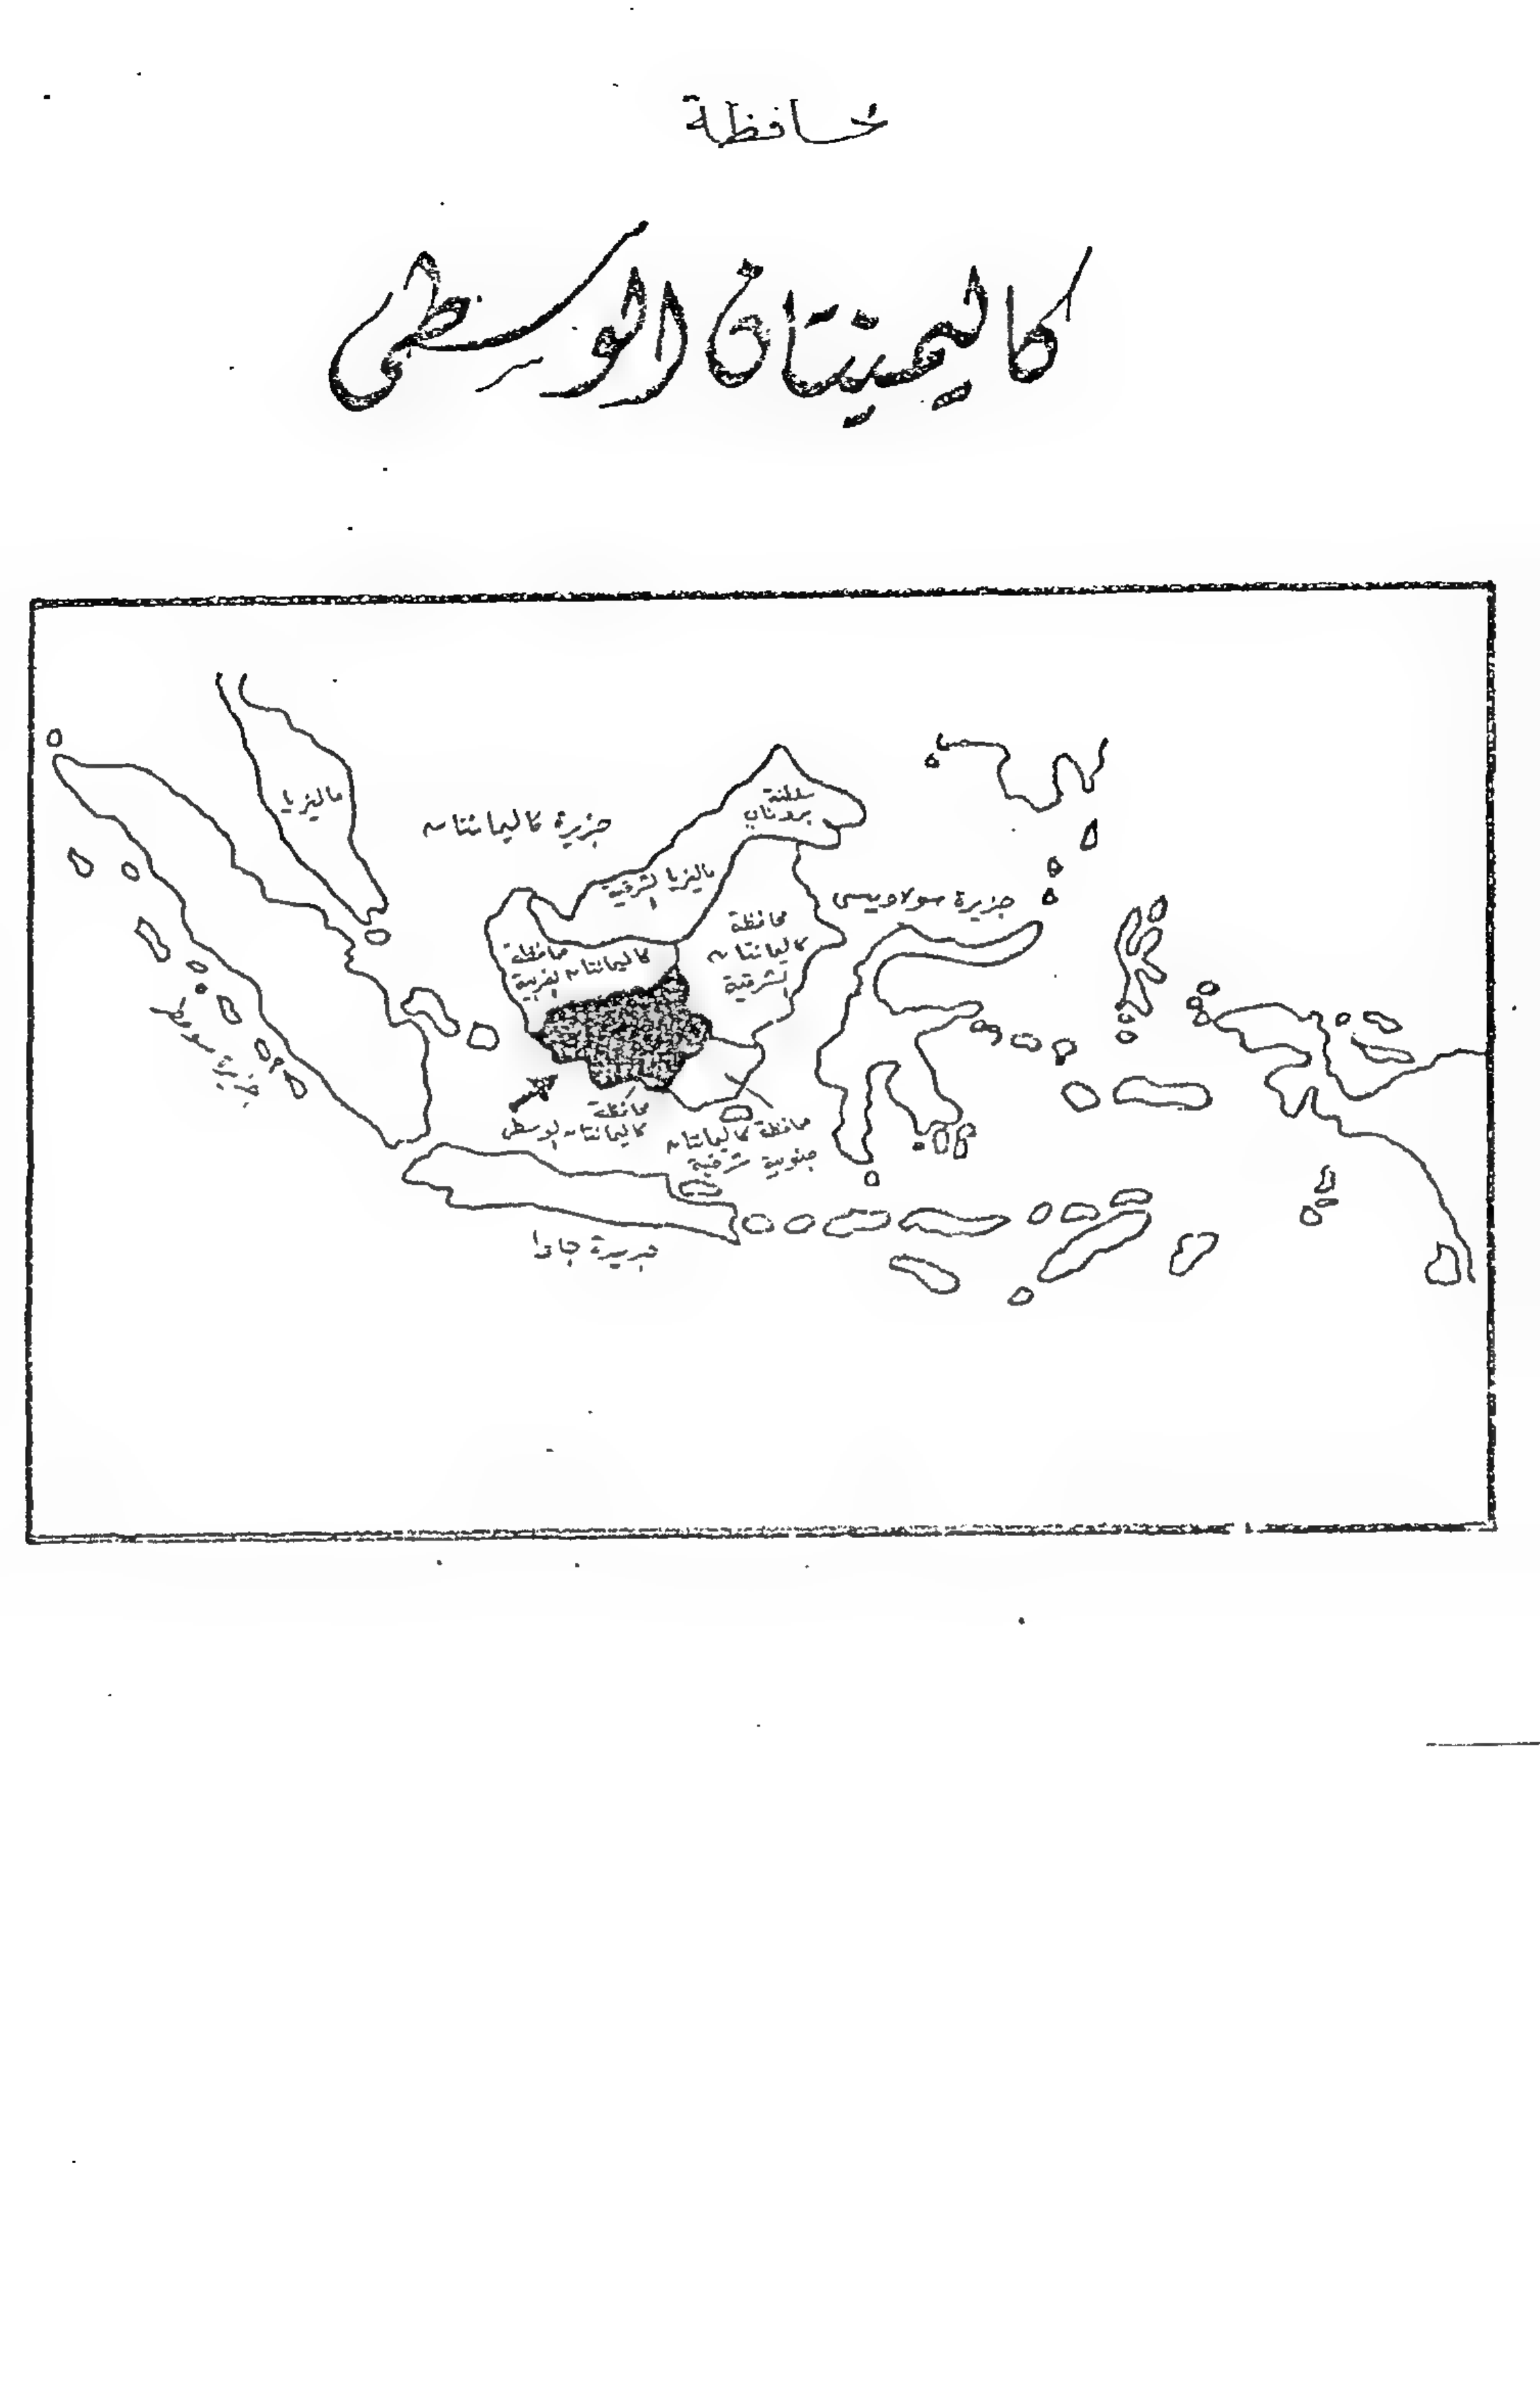 محافظة
كاليمينتان الوسطى
ماليزيا
جزيرة كاليمانتان
سلطنة
بروناي
ماليزيا الشرقية
جزيرة سولاويسى
محافظة
كاليمانتان
الشرقية
محافظة
كاليمانتان الغربية
جزيرة سومطرا
محافظة
كاليمانتان الوسطى
محافظة كاليمانتان
جنوبية شرقية
جزيرة جاوا